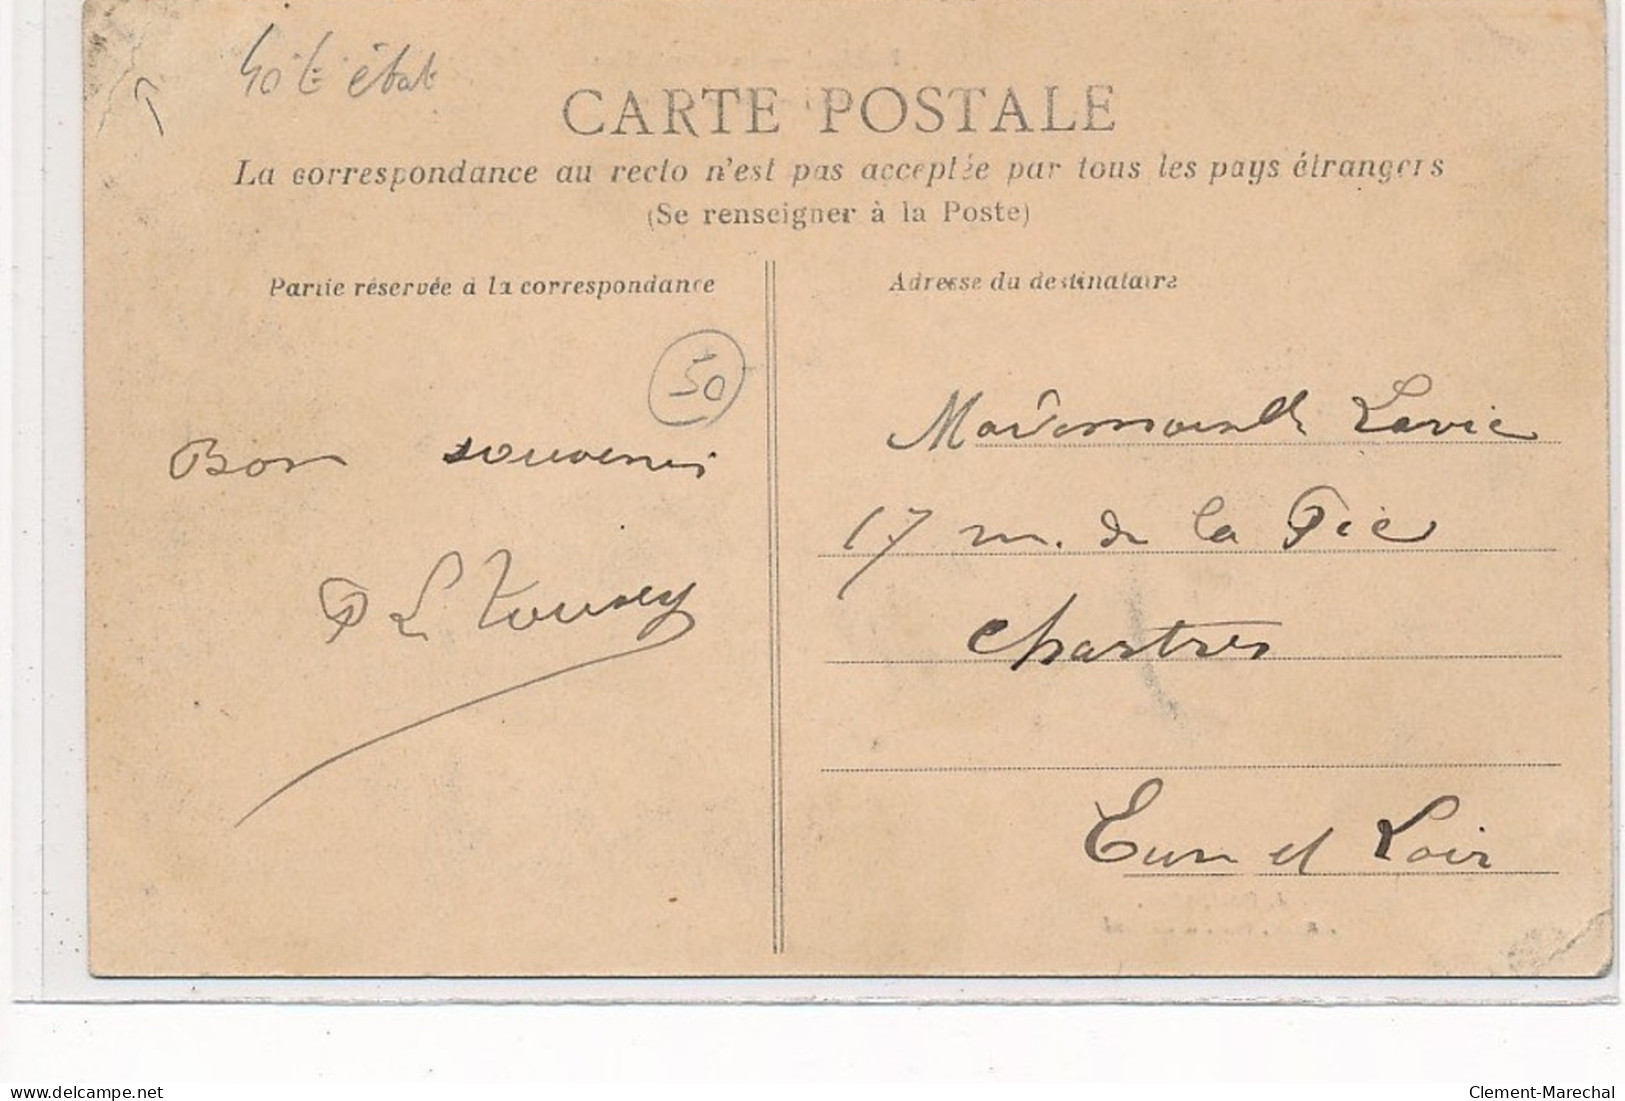 40 E état
CARTE POSTALE
La correspondance au recto n'est pas acceptée par tous les pays étrangers
(Se renseigner à la Poste)
Partie réservée à la correspondance
Adresse du destinataire
50
Bon souvenir
Mademoiselle Lavie
17 r. de la Pie
Chartres
Eure et Loir
delcampe.net
Clement-Marechal